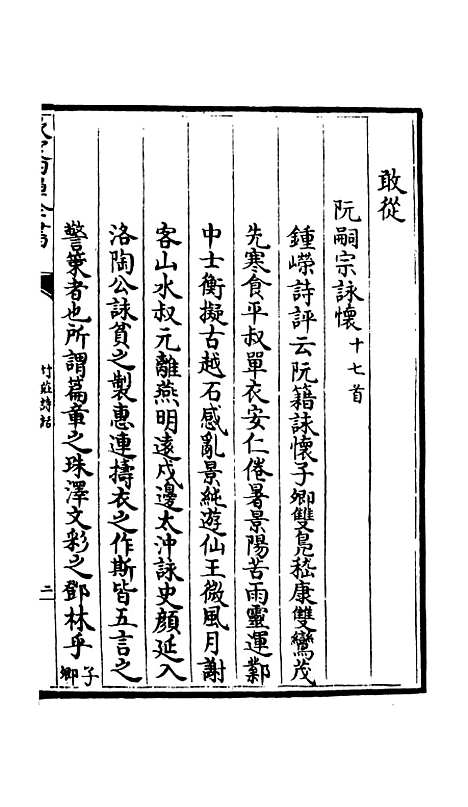 敢從
阮嗣宗詠懷十七首
鍾嶸詩評云阮籍詠懷子卿雙鳧嵇康雙鸞茂
先寒食平叔單衣安仁倦暑景陽苦雨靈運鄴
中士衡擬古越石感亂景純遊仙王微風月謝
客山水叔元離燕明遠戍邊太沖詠史顔延入
洛陶公詠貧之製惠連擣衣之作斯皆五言之
警策者也所謂篇章之珠澤文彩之鄧林乎子
卿
竹莊詩話
二